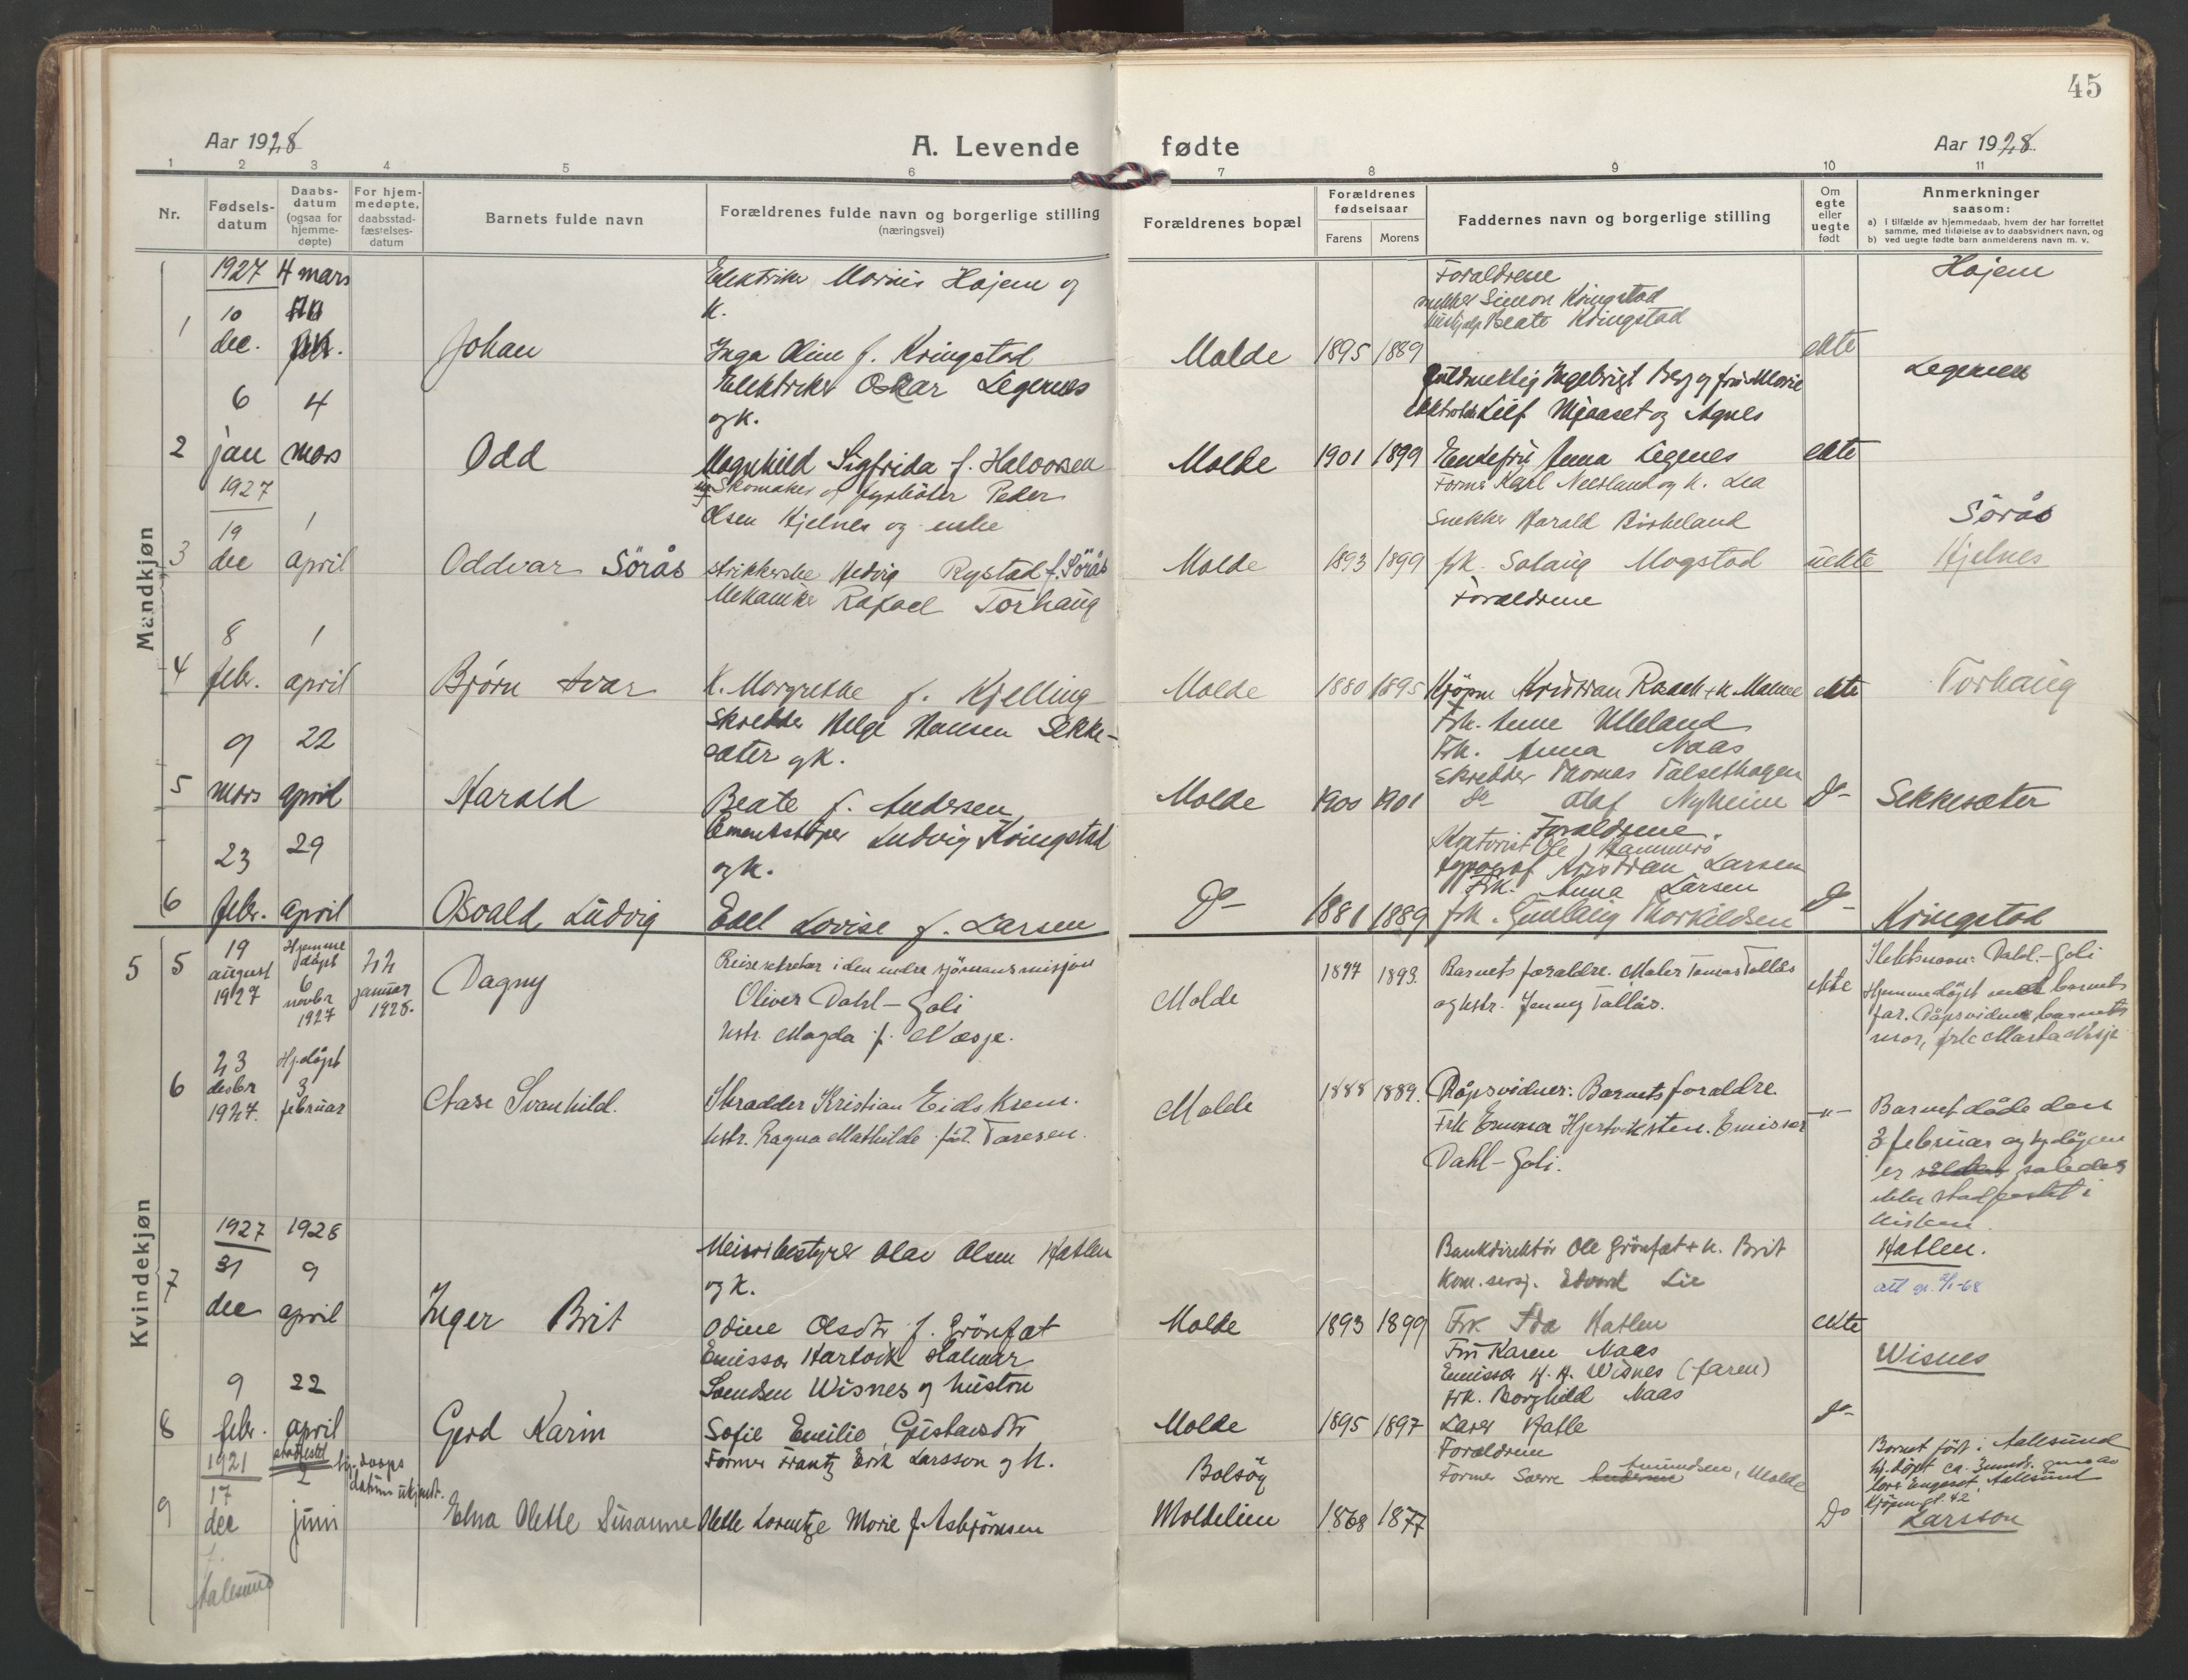 45
Aar 1928
A. Levende
fødte
Aar 1928.
1 2 3 4 5 6 7 8 9 10 11
Nr.
Fødsels-
datum
Daabs-
datum
(ogsaa for
hjemme-
døpte)
For hjem-
medøpte,
daabsstad-
fæstelses-
datum
Barnets fulde navn
Forældrenes fulde navn og borgerlige stilling
(næringsvei)
Forældrenes bopæl
Forældrenes
fødselsaar
Farens
Morens
Faddernes navn og borgerlige stilling
Om
egte
eller
uegte
født
Anmerkninger
saasom:
a) i tilfælde av hjemmedaab, hvem der har forrettet
samme, med tilføielse av to daabsvidners navn, og
b) ved uegte fødte barn anmelderens navn m. v.
Mandkjøn
1
1927
10
dec.
4 mars
Johan
Elektriker Marius Hojem og
K.
Inga Oline f. Kringstad
Molde
1895 1889
Foraldrene
snekker Simon Kringstad
Beate Kringstad
ekte
Hojem
2
6
jan
4
mars
Odd
Elektriker Oskar Legernes
og K.
Magnhild Sigfrida f. Halvorsen
Molde
1901 1899
Ingebrigt Berg og fru Marie
Leif Mjaaset og Agnes
Enkefru Anna Legnes
ekte
Legernes
3
1927
19
dec
1
april
Oddvar Sörås
Skomaker og fyrböter Peder
Olsen Hjelnes og enke
strikkerske Hedvig Rystad f. Sörås
Molde
1893 1899
Karl Neesland og K. Lea
Snekker Harald Birkeland
frk. Solaug Mogstad
uekte
Sörås
Hjelnes
4
8
febr.
1
april
Bjørn Ivar
Mekaniker Rafael Torhaug
K. Margrethe f. Kjelling
Molde
1880 1895
Foraldrene
Kjöpm Kristian Raach + K. Malene
Frk. Anne Ulleland
ekte
Torhaug
5
9
mars
22
april
Harald
Skredder Helge Hansen Sekke-
sæter og K.
Beate f. Andersen
Molde
1900 1901
Frk. Anna Naas
Skredder Thomas Talsethagen
Do Olaf Nyheim
Do
Sekkesæter
6
23
febr.
29
april
Osvald Ludvig
Cementstöper Ludvig Kringstad
og K.
Edel Lovise f. Larsen
Do
1881 1889
Foraldrene.
Kontorist Ole J Hammerö
typograf Kristian Larsen
Frk. Anna Larsen
frk. Gudlaug Thorkildsen
Do
Kringstad
Kvindekjøn
5 5
19
august
1927
Hjemme
döpt
6
novbr
1927
22
januar
1928.
Dagny
Reisesekretær i den indre sjömannsmisjon
Oliver Dahl-Goli
hstr. Magda f. Næsje.
Molde
1897 1893.
Barnets foraldre. Maler Tomas Tallås
og hstr. Jenny Tallås.
ekte
Slektsnavn: Dahl-Goli
Hjemmedöpt ved barnets
far. Döpsvidner barnets
mor, frk Marta Nesje
6
23
desbr
1927.
Hj.döpt
3
februar
Aase Svanhild.
Skradder Kristian Eidskrem.
hstr. Ragna Mathilde föd. Taresen.
Molde
1888 1889.
Döpsvidner: Barnets foraldre.
Frk Emma Hjertvikstен. Emissær
Dahl-Goli.
-"-
Barnet döde den
3 februar og hj.döpen
er således
ikke stadfestet i
kirken.
7
1927
31
dec
1928
9
april
Inger Brit
Meieribestyrer Olav Olsen Hatlen
og K.
Odine Olsdtr f. Grönfæt
Molde
1893 1899
Bankdirektör Ole Grönfæt + K. Brit
Kom.sersj. Edvard Lie
Frk Ida Hatlen
ekte
Hatlen.
8
9
febr.
22
april
Gerd Karin
Emissær Hartvik Halmar
Svendsen Wisnes og hustru
Sofie Emilie Gustavsdtr
Molde
1895 1897
Fru Karen Naas
Emissær H. H. Wisnes (faren)
Frk. Borghild Naas
Lærer Hatle
Do
Wisnes
9
1921
17
dec
f.
Aalesund
stadfestet
2
juni
hj.daaps
datum ukjendt.
Elna Olette Susanne
Former Frantz Erik Larsson og K.
Olette Lorentze Marie f. Asbjörnsen
Bolsöy
Moldelien
1868 1877
Foraldrene
Former Sverre Amundsen, Molde
Do
Barnet född i Aalesund
hj.döpt ca. 3 mndr. gml av
lærer Engeset, Aalesund
Kjöpmgt. 42
Larsson